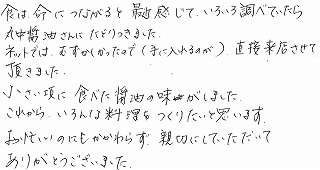 食は、命につながると最近感じて、いろいろ調べていたら
丸中醤油さんにたどりつきました。
ネットでは、むずかしかったので(手に入れるのが)、直接来店させて
頂きました。
小さい頃に食べた醤油の味がしました。
これから、いろんな料理をつくりたいと思います。
お忙しいのにもかかわらず、親切にしていただいて
ありがとうございました。